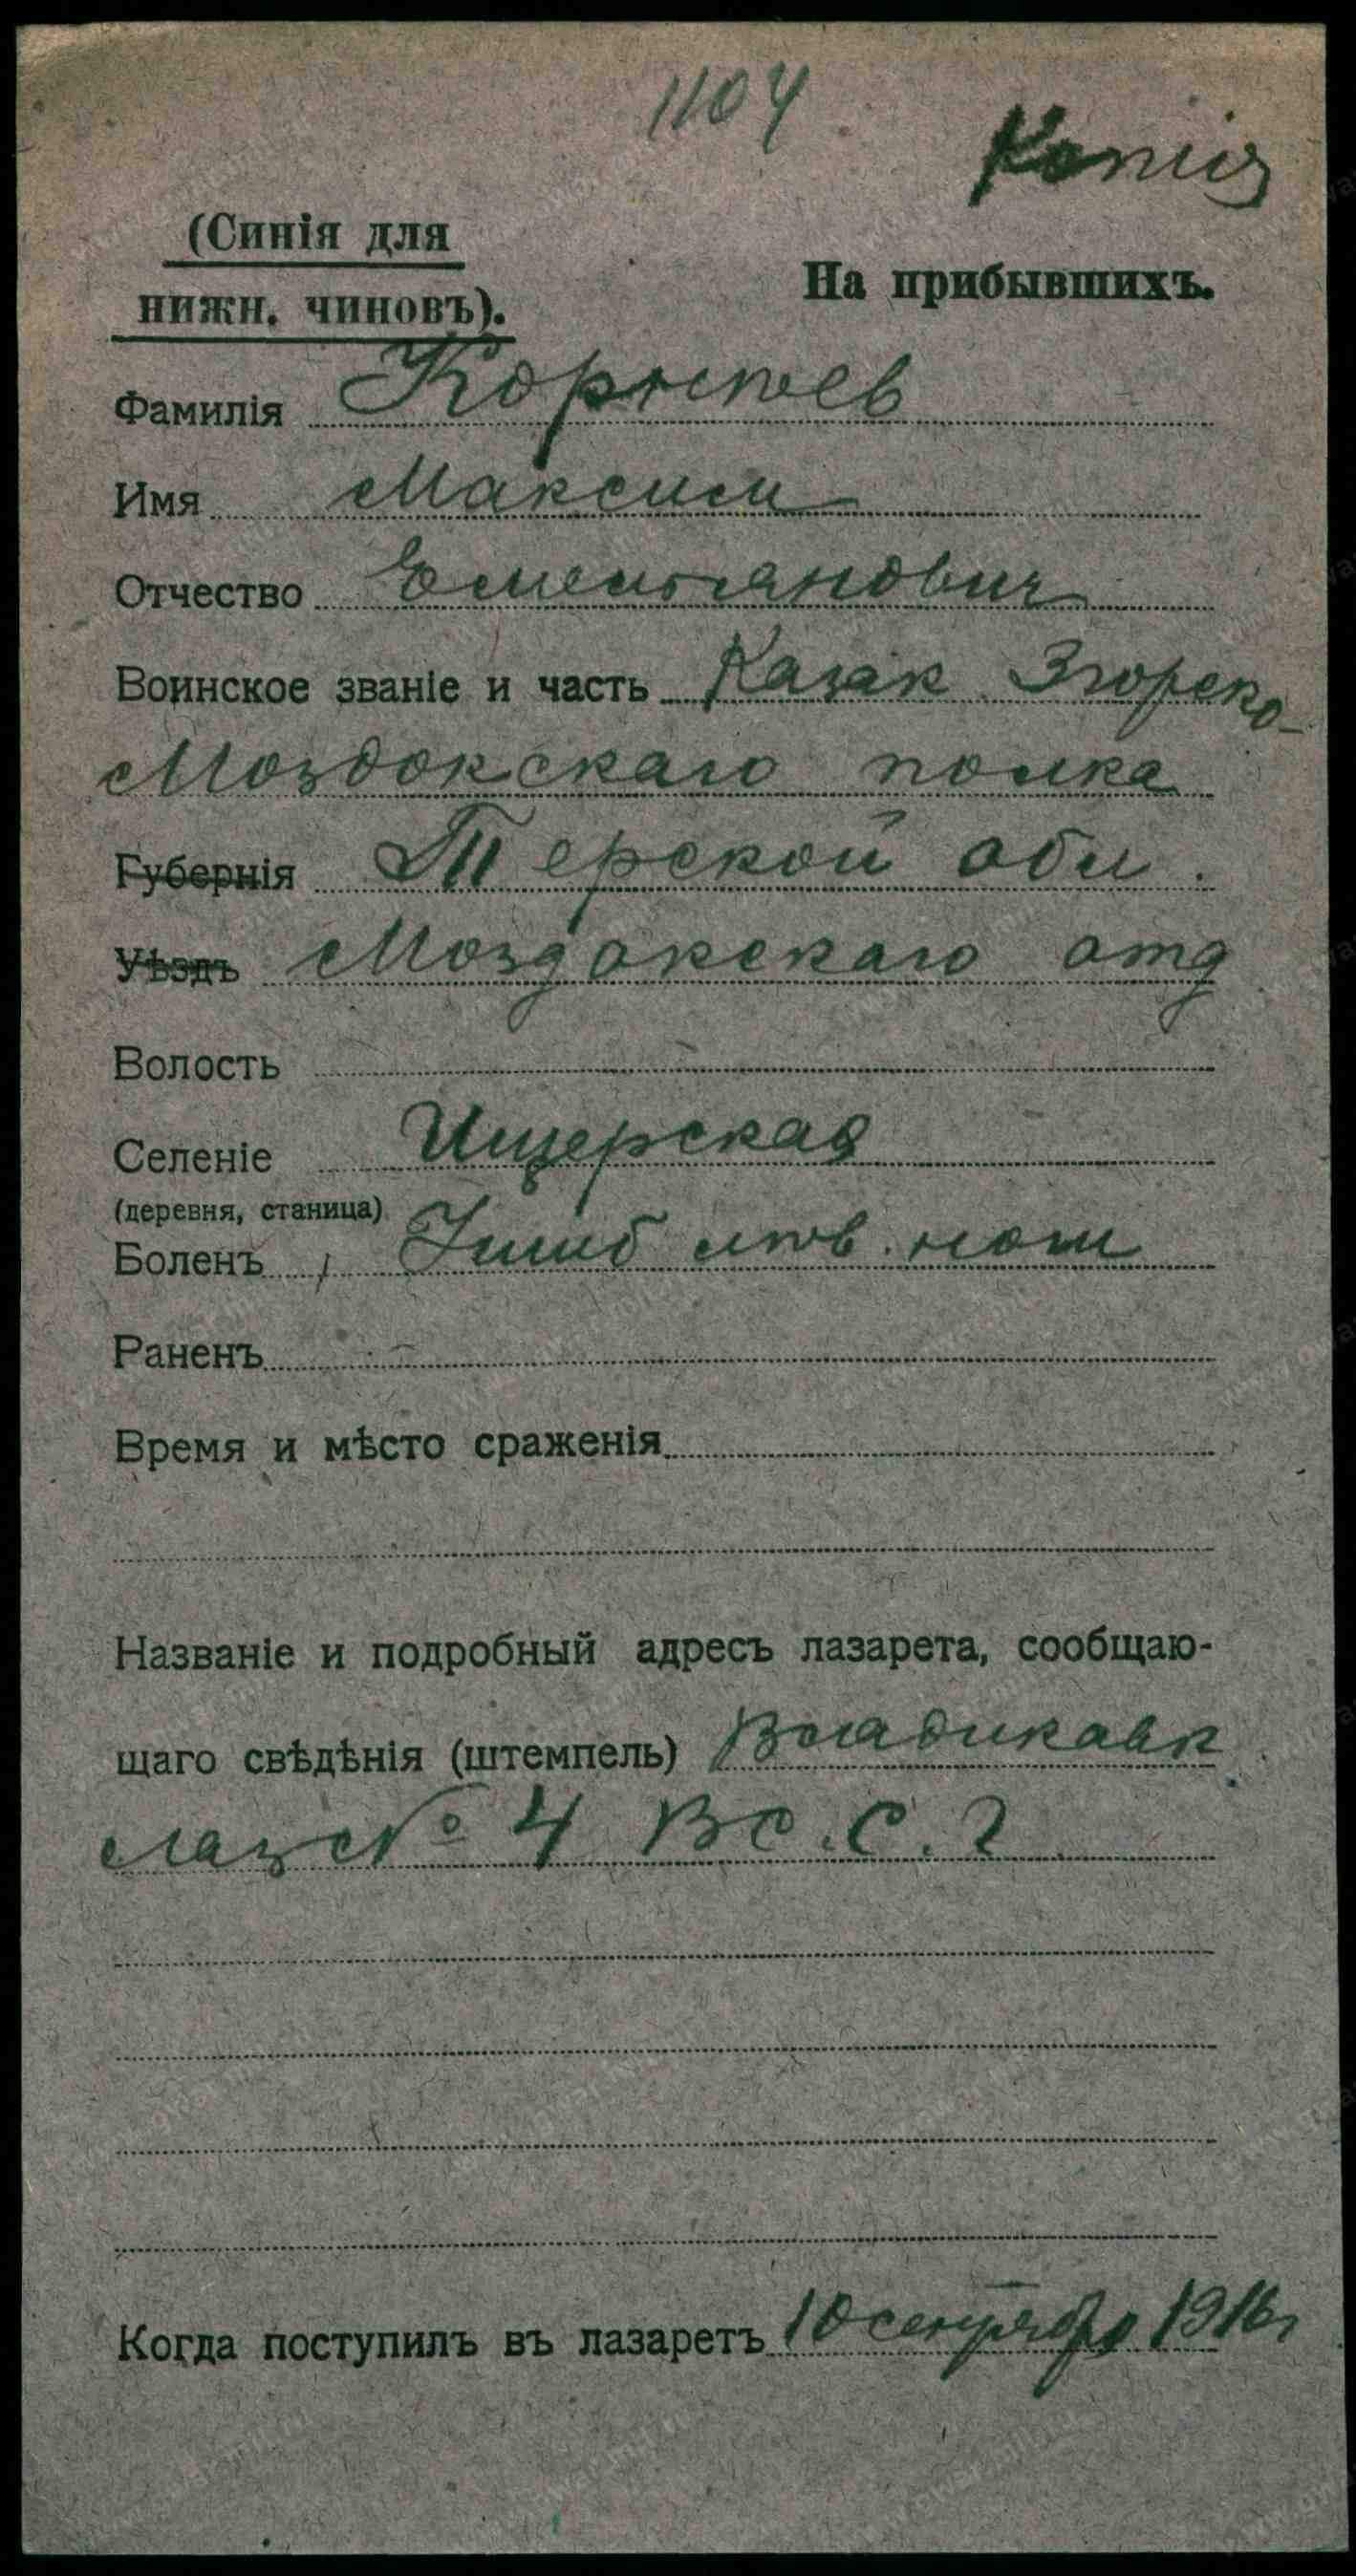 1104
Копия
(Синія для
нижн. чиновъ).
На прибывшихъ.
Фамилія
Имя Максим
Отчество Емельянович
Воинское званіе и часть Казак
Моздокскаго полка
Губернія Терской обл.
Уѣздъ Моздокскаго отд
Волость
Селеніе Ищерская
(деревня, станица)
Боленъ Ушиб лѣв. ноги
Раненъ
Время и мѣсто сраженія
Названіе и подробный адресъ лазарета, сообщаю-
щаго свѣдѣнія (штемпель) Владикавк
лаз № 4 В с. С. Г
Когда поступилъ въ лазаретъ 10 сентября 1916г